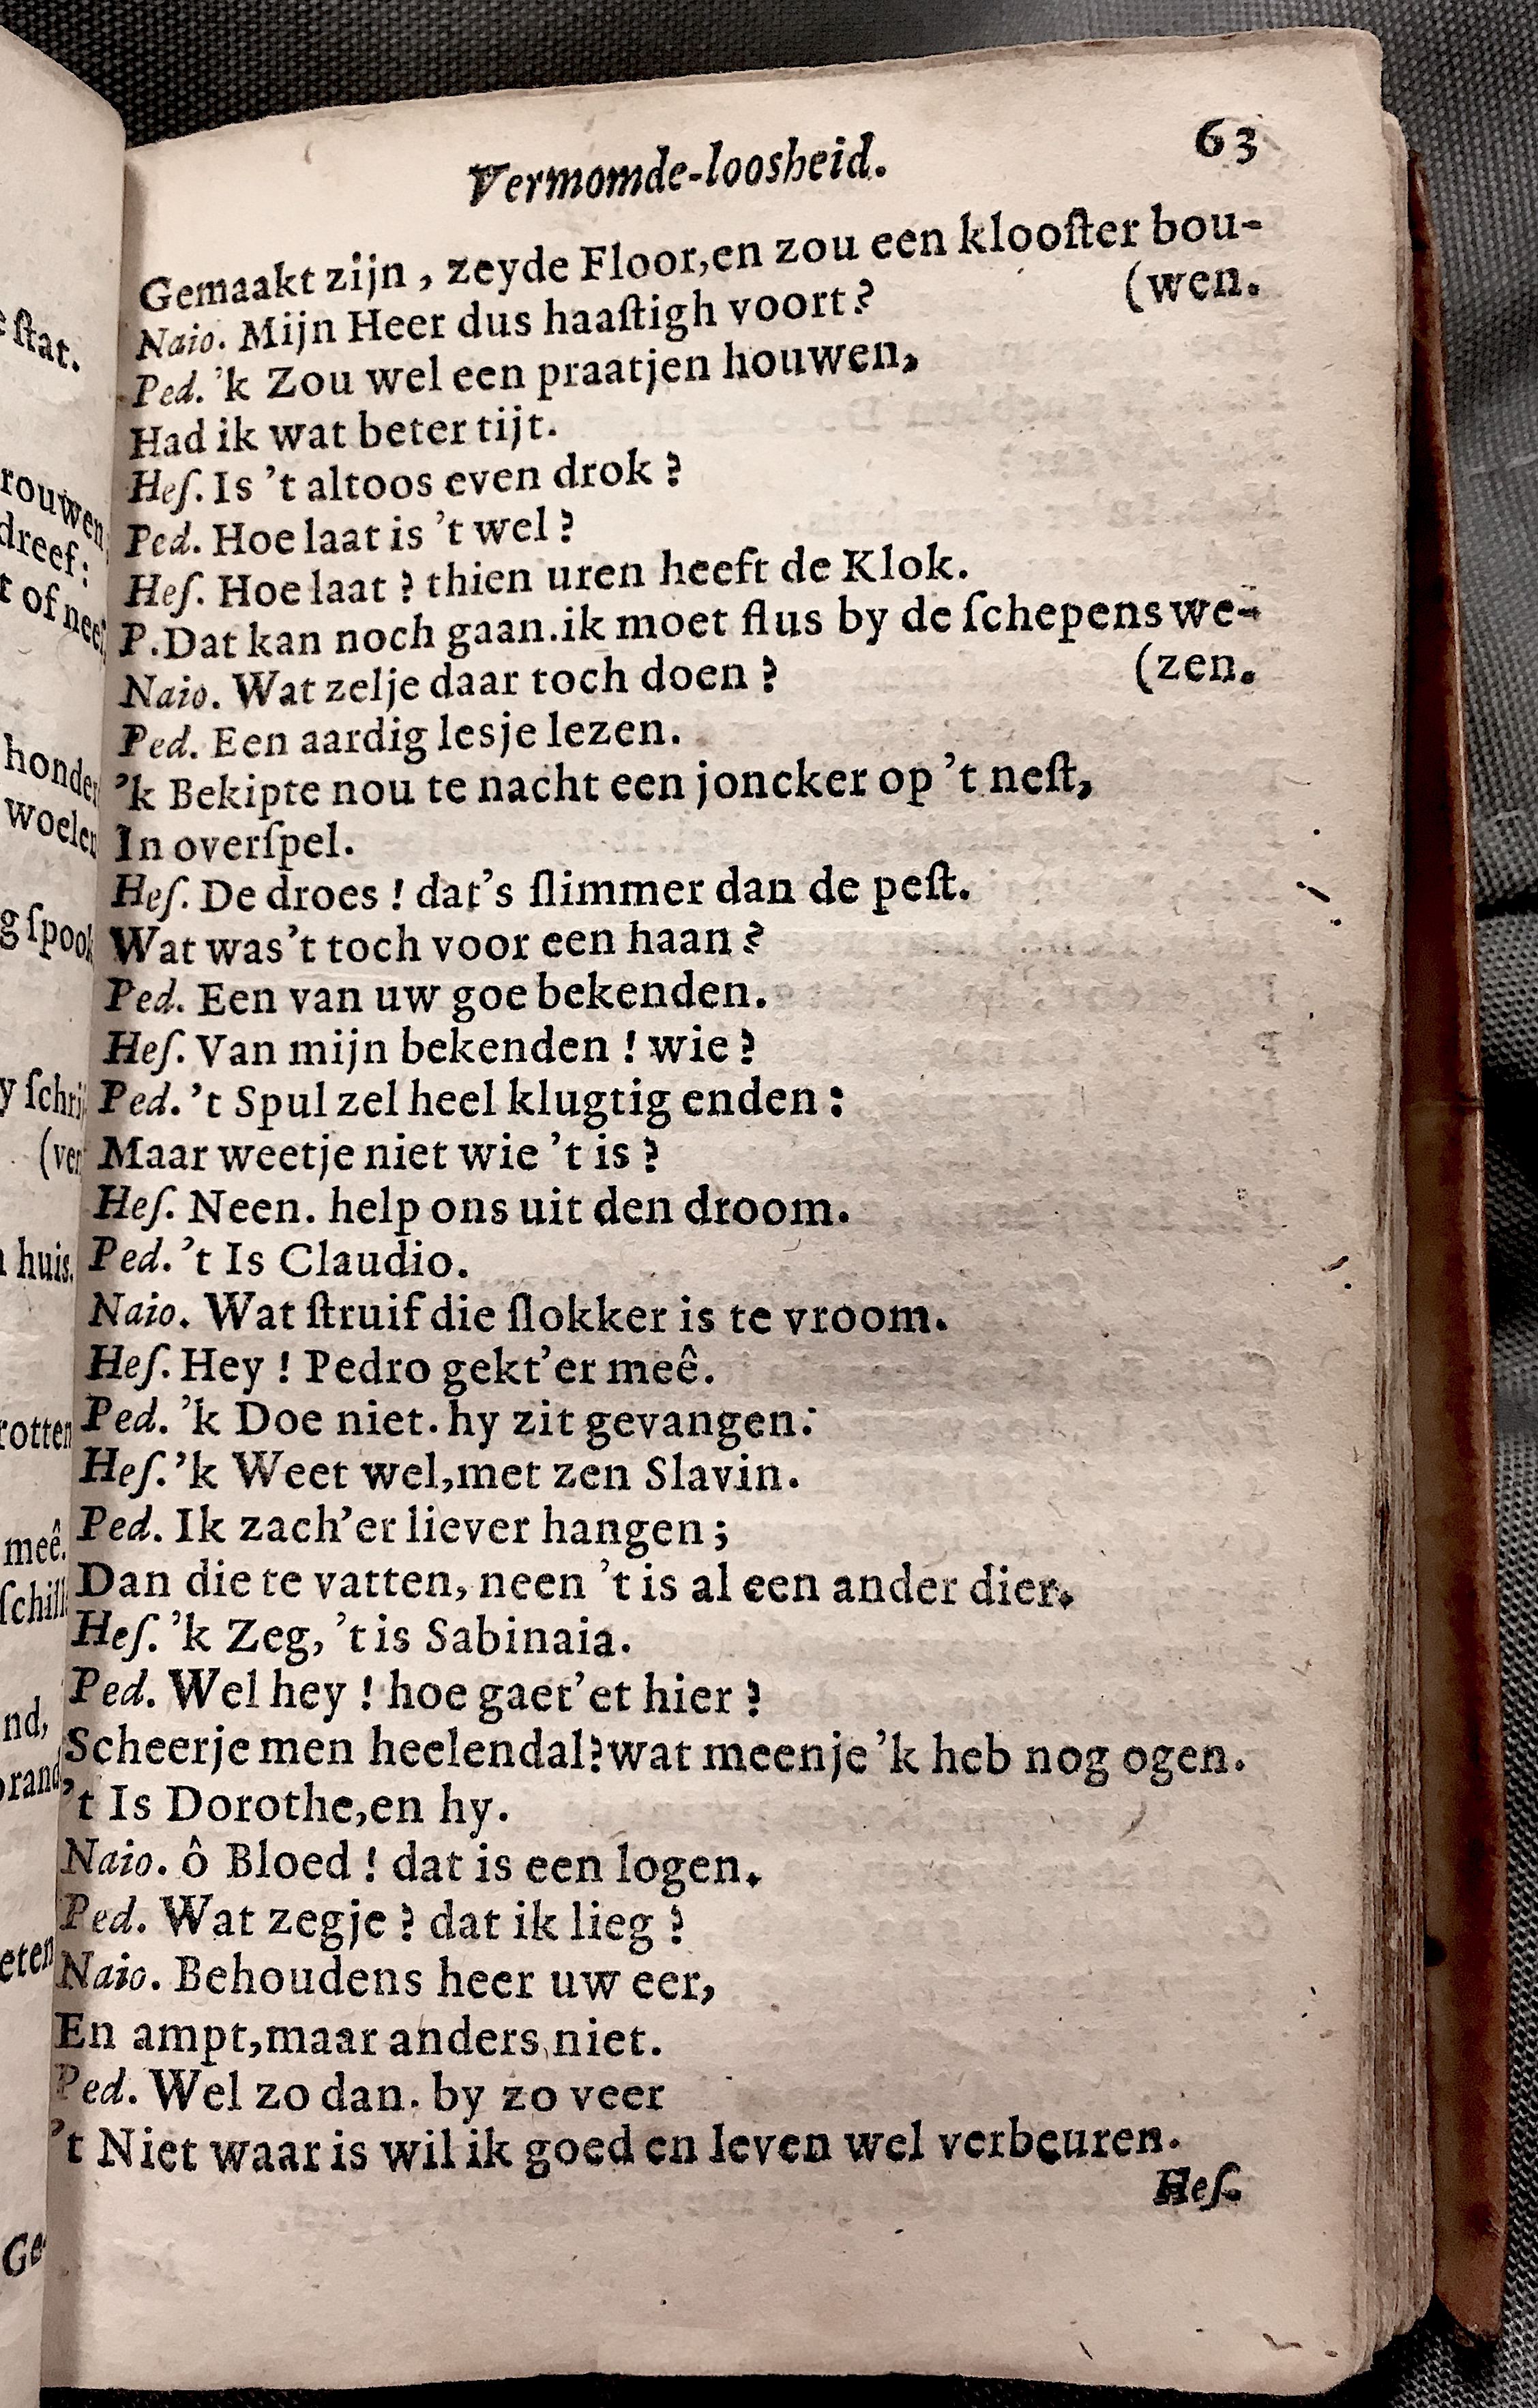 Vermomde-loosheid. 63
Gemaakt zijn, zeyde Floor, en zou een klooſter bou-
(wen.
Naio. Mijn Heer dus haaſtigh voort?
Ped. 'k Zou wel een praatjen houwen,
Had ik wat beter tijt.
Heſ. Is 't altoos even drok?
Ped. Hoe laat is 't wel?
Heſ. Hoe laat? thien uren heeft de Klok.
P. Dat kan noch gaan. ik moet flus by de ſchepens we-
(zen.
Naio. Wat zelje daar toch doen?
Ped. Een aardig lesje lezen.
'k Bekipte nou te nacht een joncker op 't neſt,
In overſpel.
Heſ. De droes! dat's ſlimmer dan de peſt.
Wat was't toch voor een haan?
Ped. Een van uw goe bekenden.
Heſ. Van mijn bekenden! wie?
Ped. 't Spul zel heel klugtig enden:
Maar weetje niet wie 't is?
Heſ. Neen. help ons uit den droom.
Ped. 't Is Claudio.
Naio. Wat ſtruif die ſlokker is te vroom.
Heſ. Hey! Pedro gekt'er meê.
Ped. 'k Doe niet. hy zit gevangen:
Heſ. 'k Weet wel, met zen Slavin.
Ped. Ik zach'er liever hangen;
Dan die te vatten, neen 't is al een ander dier.
Heſ. 'k Zeg, 't is Sabinaia.
Ped. Wel hey! hoe gaet'et hier?
Scheerje men heelendal? wat meenje 'k heb nog ogen.
't Is Dorothe, en hy.
Naio. ô Bloed! dat is een logen.
Ped. Wat zegje? dat ik lieg?
Naio. Behoudens heer uw eer,
En ampt, maar anders niet.
Ped. Wel zo dan. by zo veer
't Niet waar is wil ik goed en leven wel verbeuren.
Heſ.
ſtat.
dreef:
t of nee
g ſpook
y ſchri
(ver
huis.
rotten
meê.
ſchill
nd,
eten
Ge-